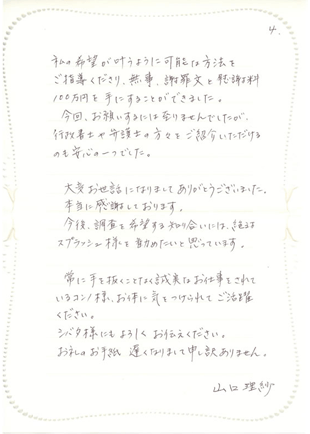 4.
私の希望が叶うように可能な方法を
ご指導くださり、無事、謝罪文と慰謝料
100万円を手にすることができました。
今回、お願いするには至りませんでしたが、
行政書士や弁護士の方々をご紹介いただける
のも安心の一つでした。
大変お世話になりましてありがとうございました。
本当に感謝しております。
今後、調査を希望する知り合いには、
スプラッシュ様を勧めたいと思っています。
常に手を抜くことなく誠実なお仕事をされて
いるコンノ様、お体に気をつけられてご活躍
ください。
シバタ様にもよろしくお伝えください。
お礼のお手紙 遅くなりまして申し訳ありません。
山口理紗